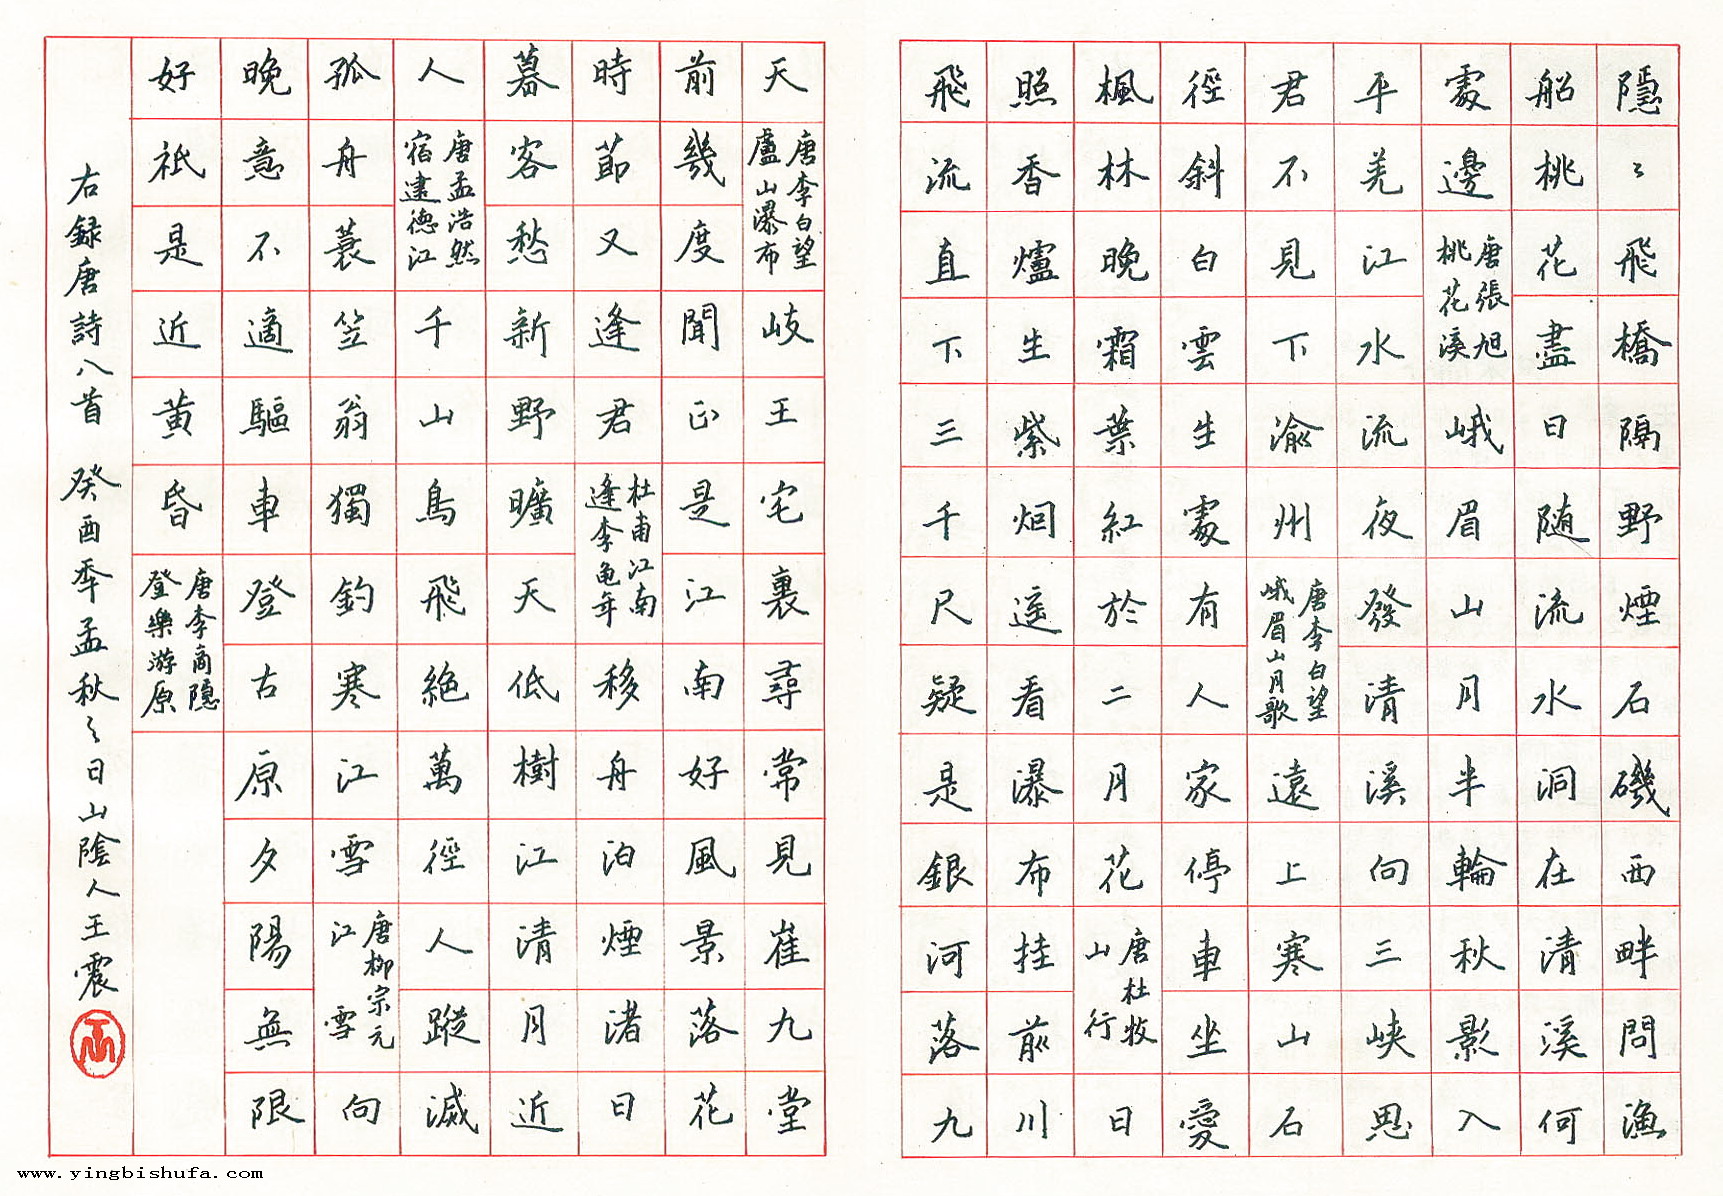 隱〻飛橋隔野煙石磯西畔問漁
船桃花盡日随流水洞在清溪何
處邊唐張旭桃花溪峨眉山月半輪秋影入
平羌江水流夜發清溪向三峽思
君不見下渝州唐李白望峨眉山月歌遠上寒山石
徑斜白雲生處有人家停車坐愛
楓林晚霜葉紅於二月花唐杜牧山行日
照香爐生紫烟遥看瀑布挂前川
飛流直下三千尺疑是銀河落九
天唐李白望廬山瀑布岐王宅裏尋常見崔九堂
前幾度聞正是江南好風景落花
時節又逢君杜甫江南逢李龜年移舟泊煙渚日
暮客愁新野曠天低樹江清月近
人唐孟浩然宿建德江千山鳥飛絕萬徑人蹤滅
孤舟蓑笠翁獨釣寒江雪唐柳宗元江雪向
晚意不適驅車登古原夕陽無限
好祇是近黄昏唐李商隱登樂游原
右録唐詩八首 癸酉秊孟秋之日山陰人王震
www.yingbishufa.com